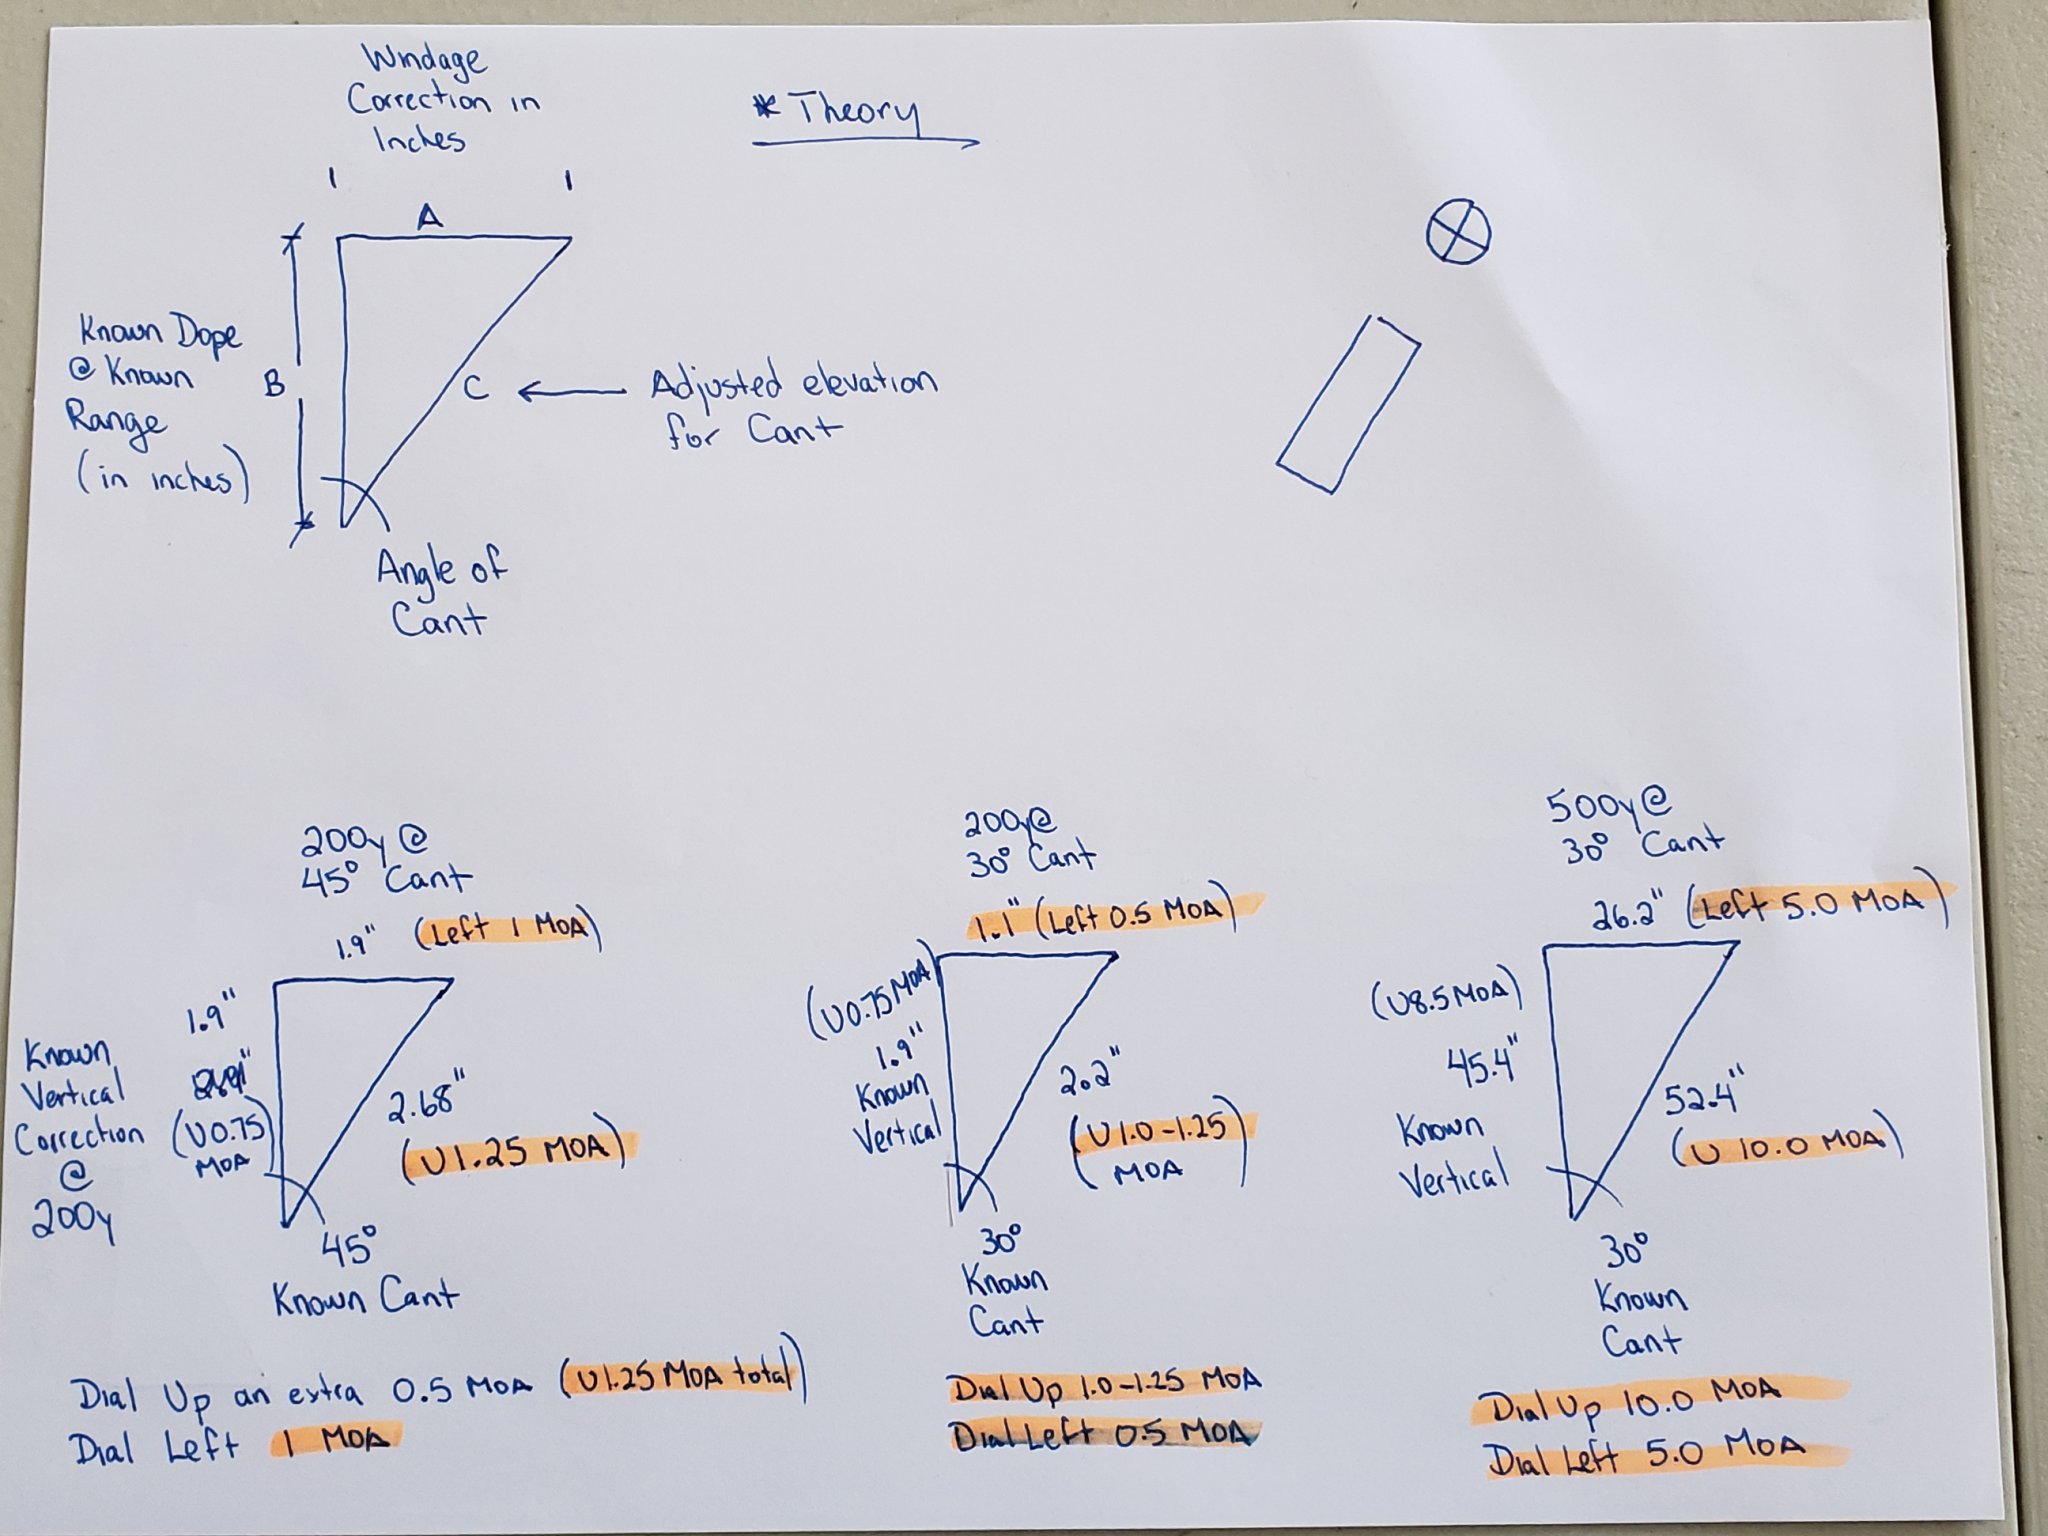 Windage
Correction in
Inches
* Theory
A
Known Dope
@ Known
Range
(in inches)
B
C
Adjusted elevation
for Cant
Angle of
Cant
200y @
45° Cant
1.9" (Left 1 MOA)
1.9"
Known
Vertical
Correction
@
200y
(U0.75
MOA
2.68"
(U1.25 MOA)
45°
Known Cant
Dial Up an extra 0.5 MOA (U1.25 MOA total)
Dial Left 1 MOA
200y@
30° Cant
1.1" (Left 0.5 MOA)
(U0.75 MOA)
1.9"
Known
Vertical
2.2"
(U1.0-1.25
MOA)
30°
Known
Cant
Dial Up 1.0-1.25 MOA
Dial Left 0.5 MOA
500y@
30° Cant
26.2" (Left 5.0 MOA)
(U8.5 MOA)
45.4"
Known
Vertical
52.4"
(U 10.0 MOA)
30°
Known
Cant
Dial Up 10.0 MOA
Dial Left 5.0 MOA